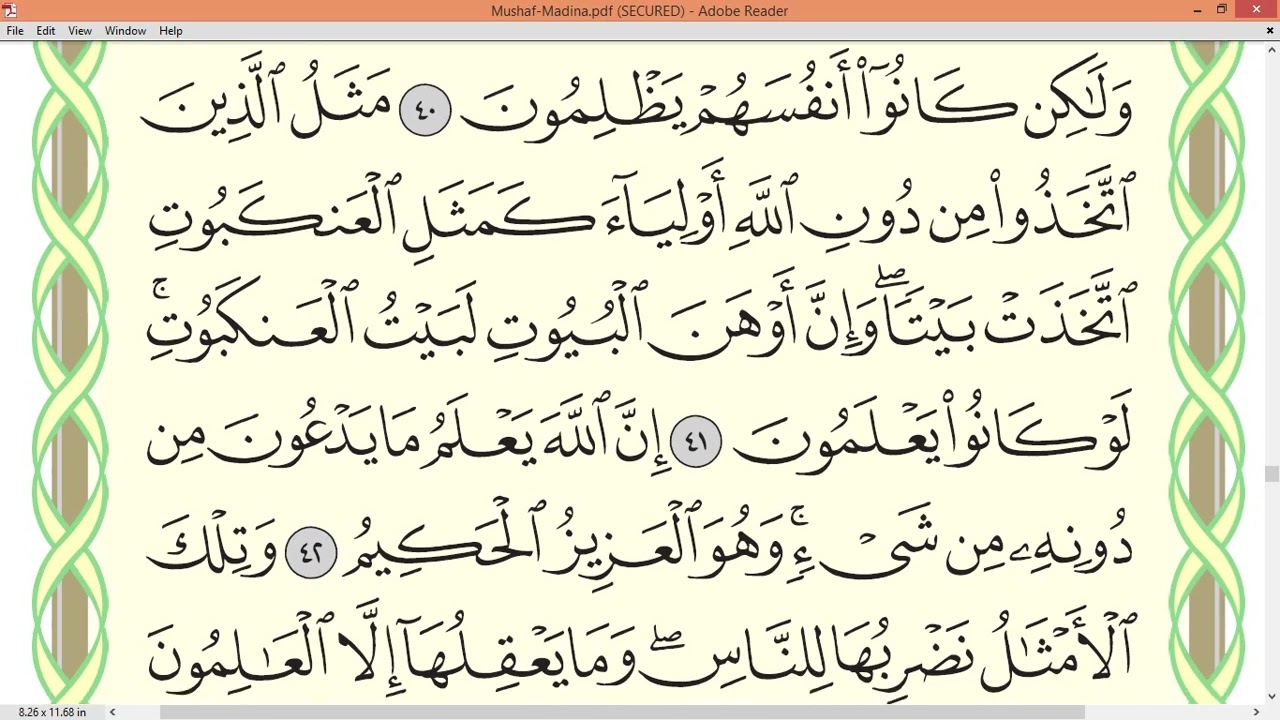 Mushaf-Madina.pdf (SECURED) - Adobe Reader
File Edit View Window Help
وَلَٰكِن كَانُوٓا۟ أَنفُسَهُمْ يَظْلِمُونَ ٤٠ مَثَلُ ٱلَّذِينَ
ٱتَّخَذُوا۟ مِن دُونِ ٱللَّهِ أَوْلِيَآءَ كَمَثَلِ ٱلْعَنكَبُوتِ
ٱتَّخَذَتْ بَيْتًا ۖ وَإِنَّ أَوْهَنَ ٱلْبُيُوتِ لَبَيْتُ ٱلْعَنكَبُوتِ ۚ
لَوْ كَانُوا۟ يَعْلَمُونَ ٤١ إِنَّ ٱللَّهَ يَعْلَمُ مَا يَدْعُونَ مِن
دُونِهِۦ مِن شَىْءٍ ۚ وَهُوَ ٱلْعَزِيزُ ٱلْحَكِيمُ ٤٢ وَتِلْكَ
ٱلْأَمْثَٰلُ نَضْرِبُهَا لِلنَّاسِ ۖ وَمَا يَعْقِلُهَآ إِلَّا ٱلْعَٰلِمُونَ
8.26 x 11.68 in